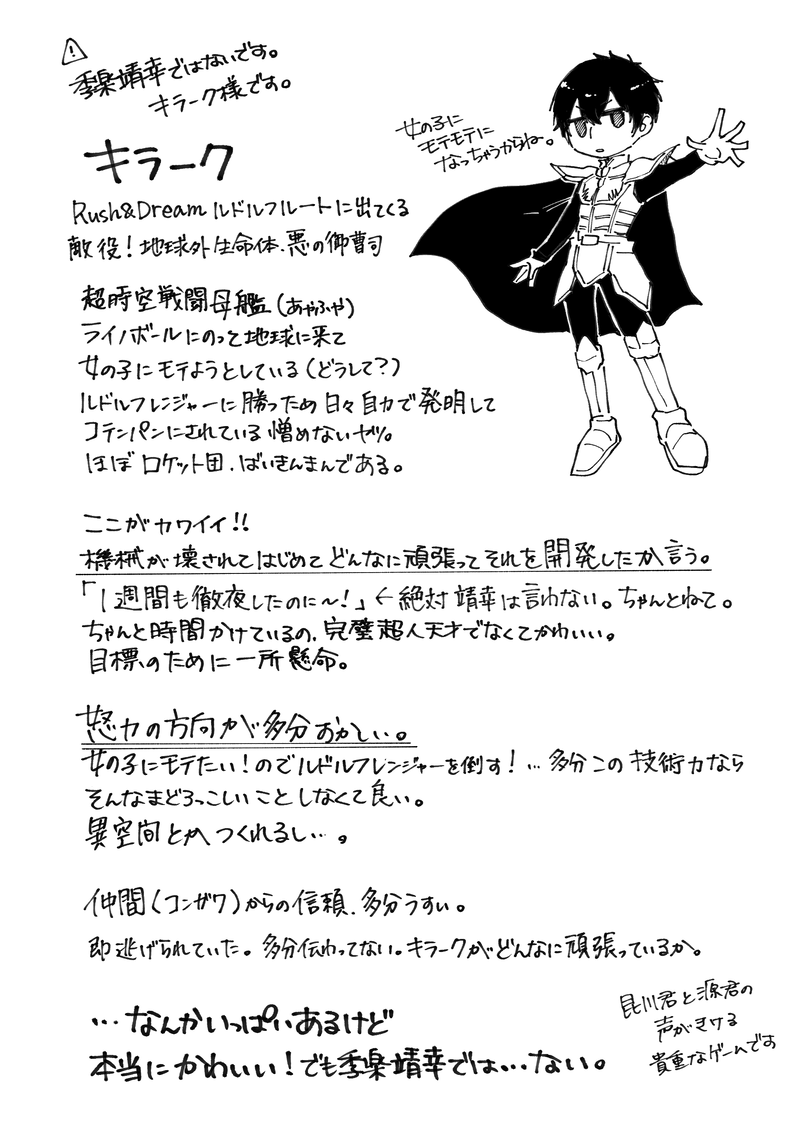 ⚠
季楽靖幸ではないです。
キラーク様です。
女の子に
モテモテに
なっちゃうからね。
キラーク
Rush&Dream ルドルフルートに出てくる
敵役！地球外生命体.悪の御曹司
超時空戦闘母艦(あやふや)
ライノボールにのって地球に来て
女の子にモテようとしている(どうして?)
ルドルフレンジャーに勝っため日々自力で発明して
コテンパンにされている憎めないヤツ。
ほぼロケット団.ばいきんまんである。
ここがカワイイ!!
機械が壊されてはじめてどんなに頑張ってそれを開発したか言う。
「1週間も徹夜したのに～!」←絶対靖幸は言わない。ちゃんとねて。
ちゃんと時間かけているの.完璧超人天才でなくてかわいい。
目標のために一所懸命。
努力の方向が多分おかしい。
女の子にモテたい!のでルドルフレンジャーを倒す!…多分この技術力なら
そんなまどろっこしいことしなくて良い。
異空間とかつくれるし…。
仲間(コンザワ)からの信頼.多分うすい。
即逃げられていた。多分伝わってない。キラークがどんなに頑張っているか。
…なんかいっぱいあるけど
本当にかわいい!でも季楽靖幸では…ない。
昆川君と源君の
声がきける
貴重なゲームです